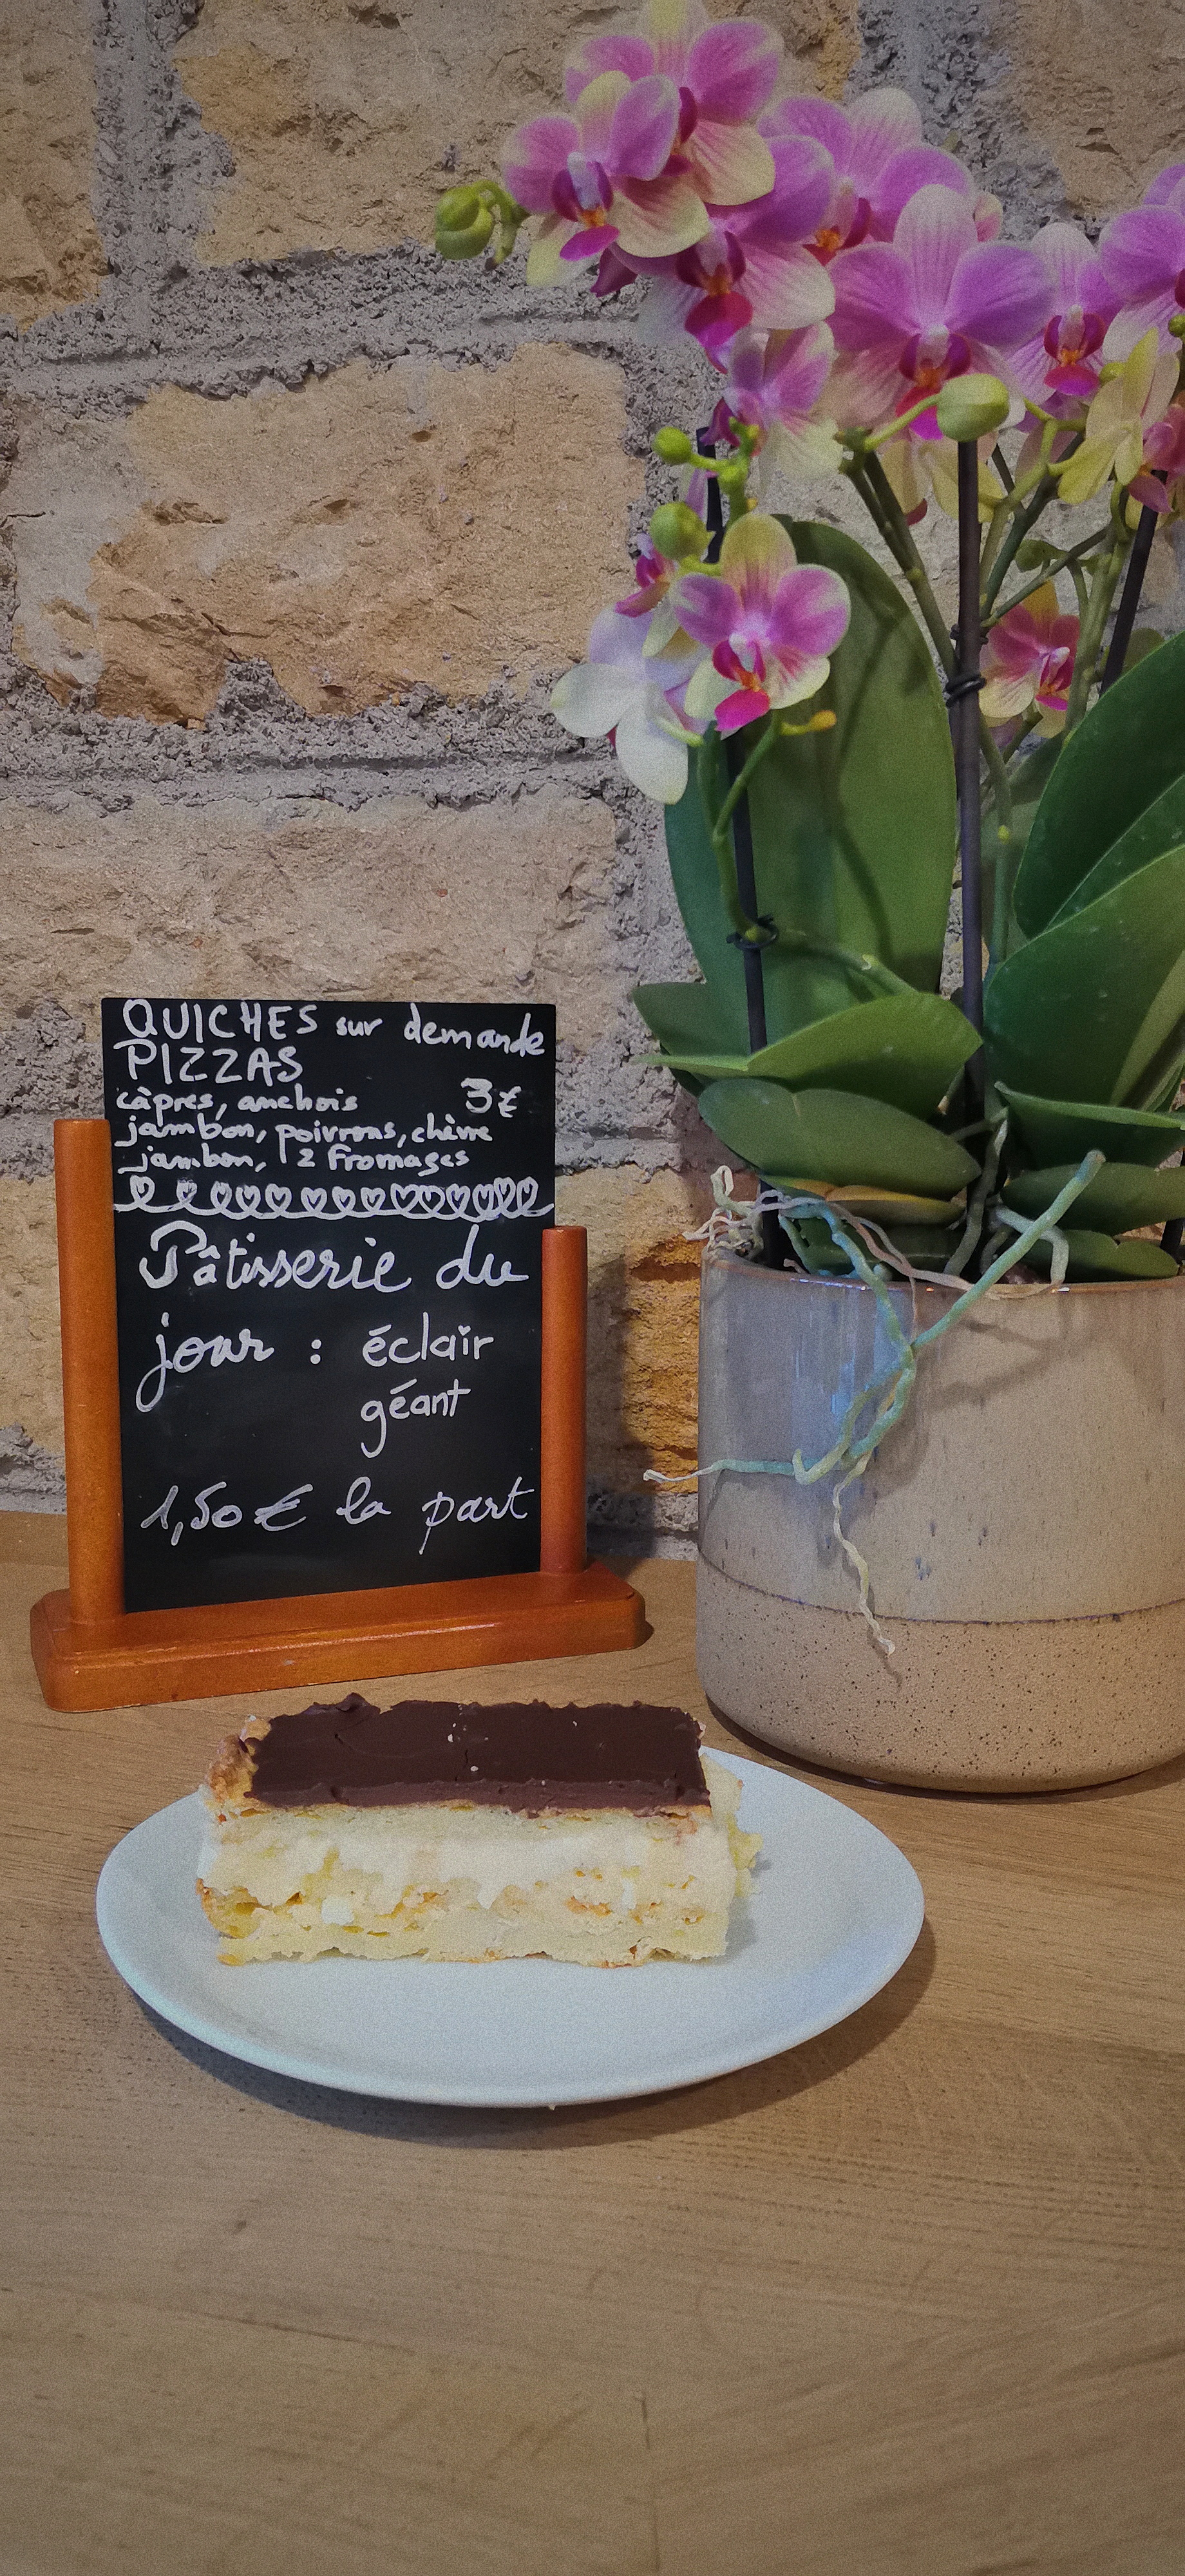 QUICHES sur demande
PIZZAS
câpres, anchois 3€
jambon, poivrons, chèvre
jambon, 2 Fromages
Pâtisserie du
jour : éclair
géant
1,50€ la part